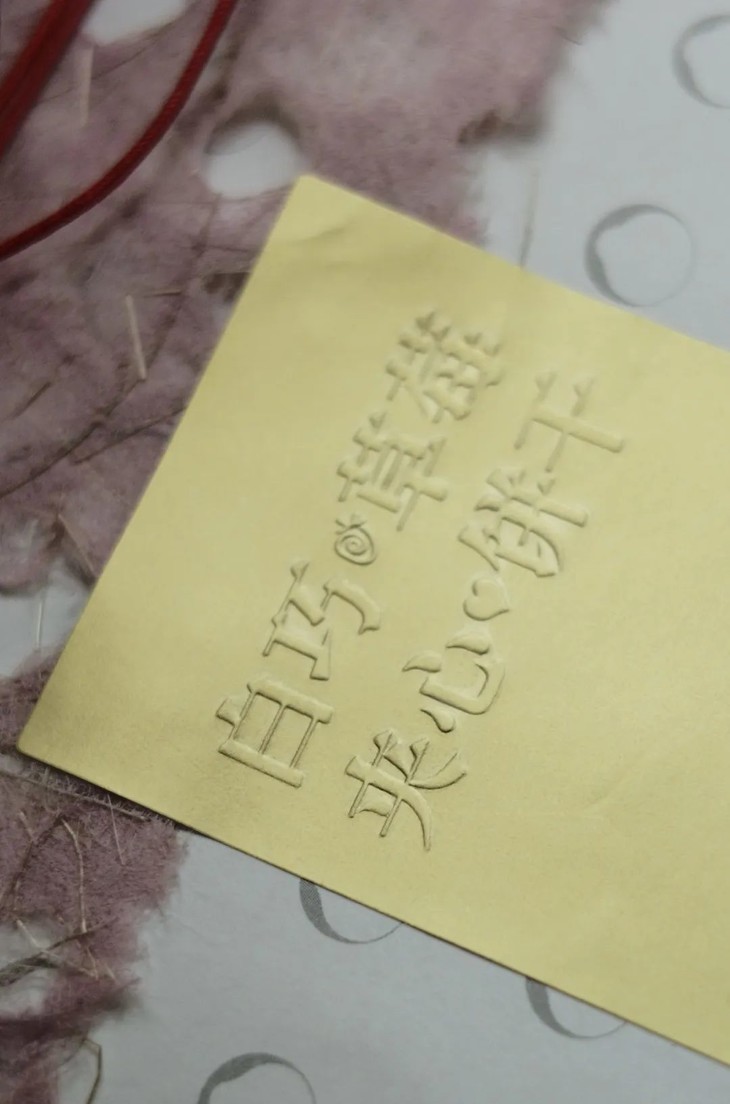 白巧草莓
夹心饼干